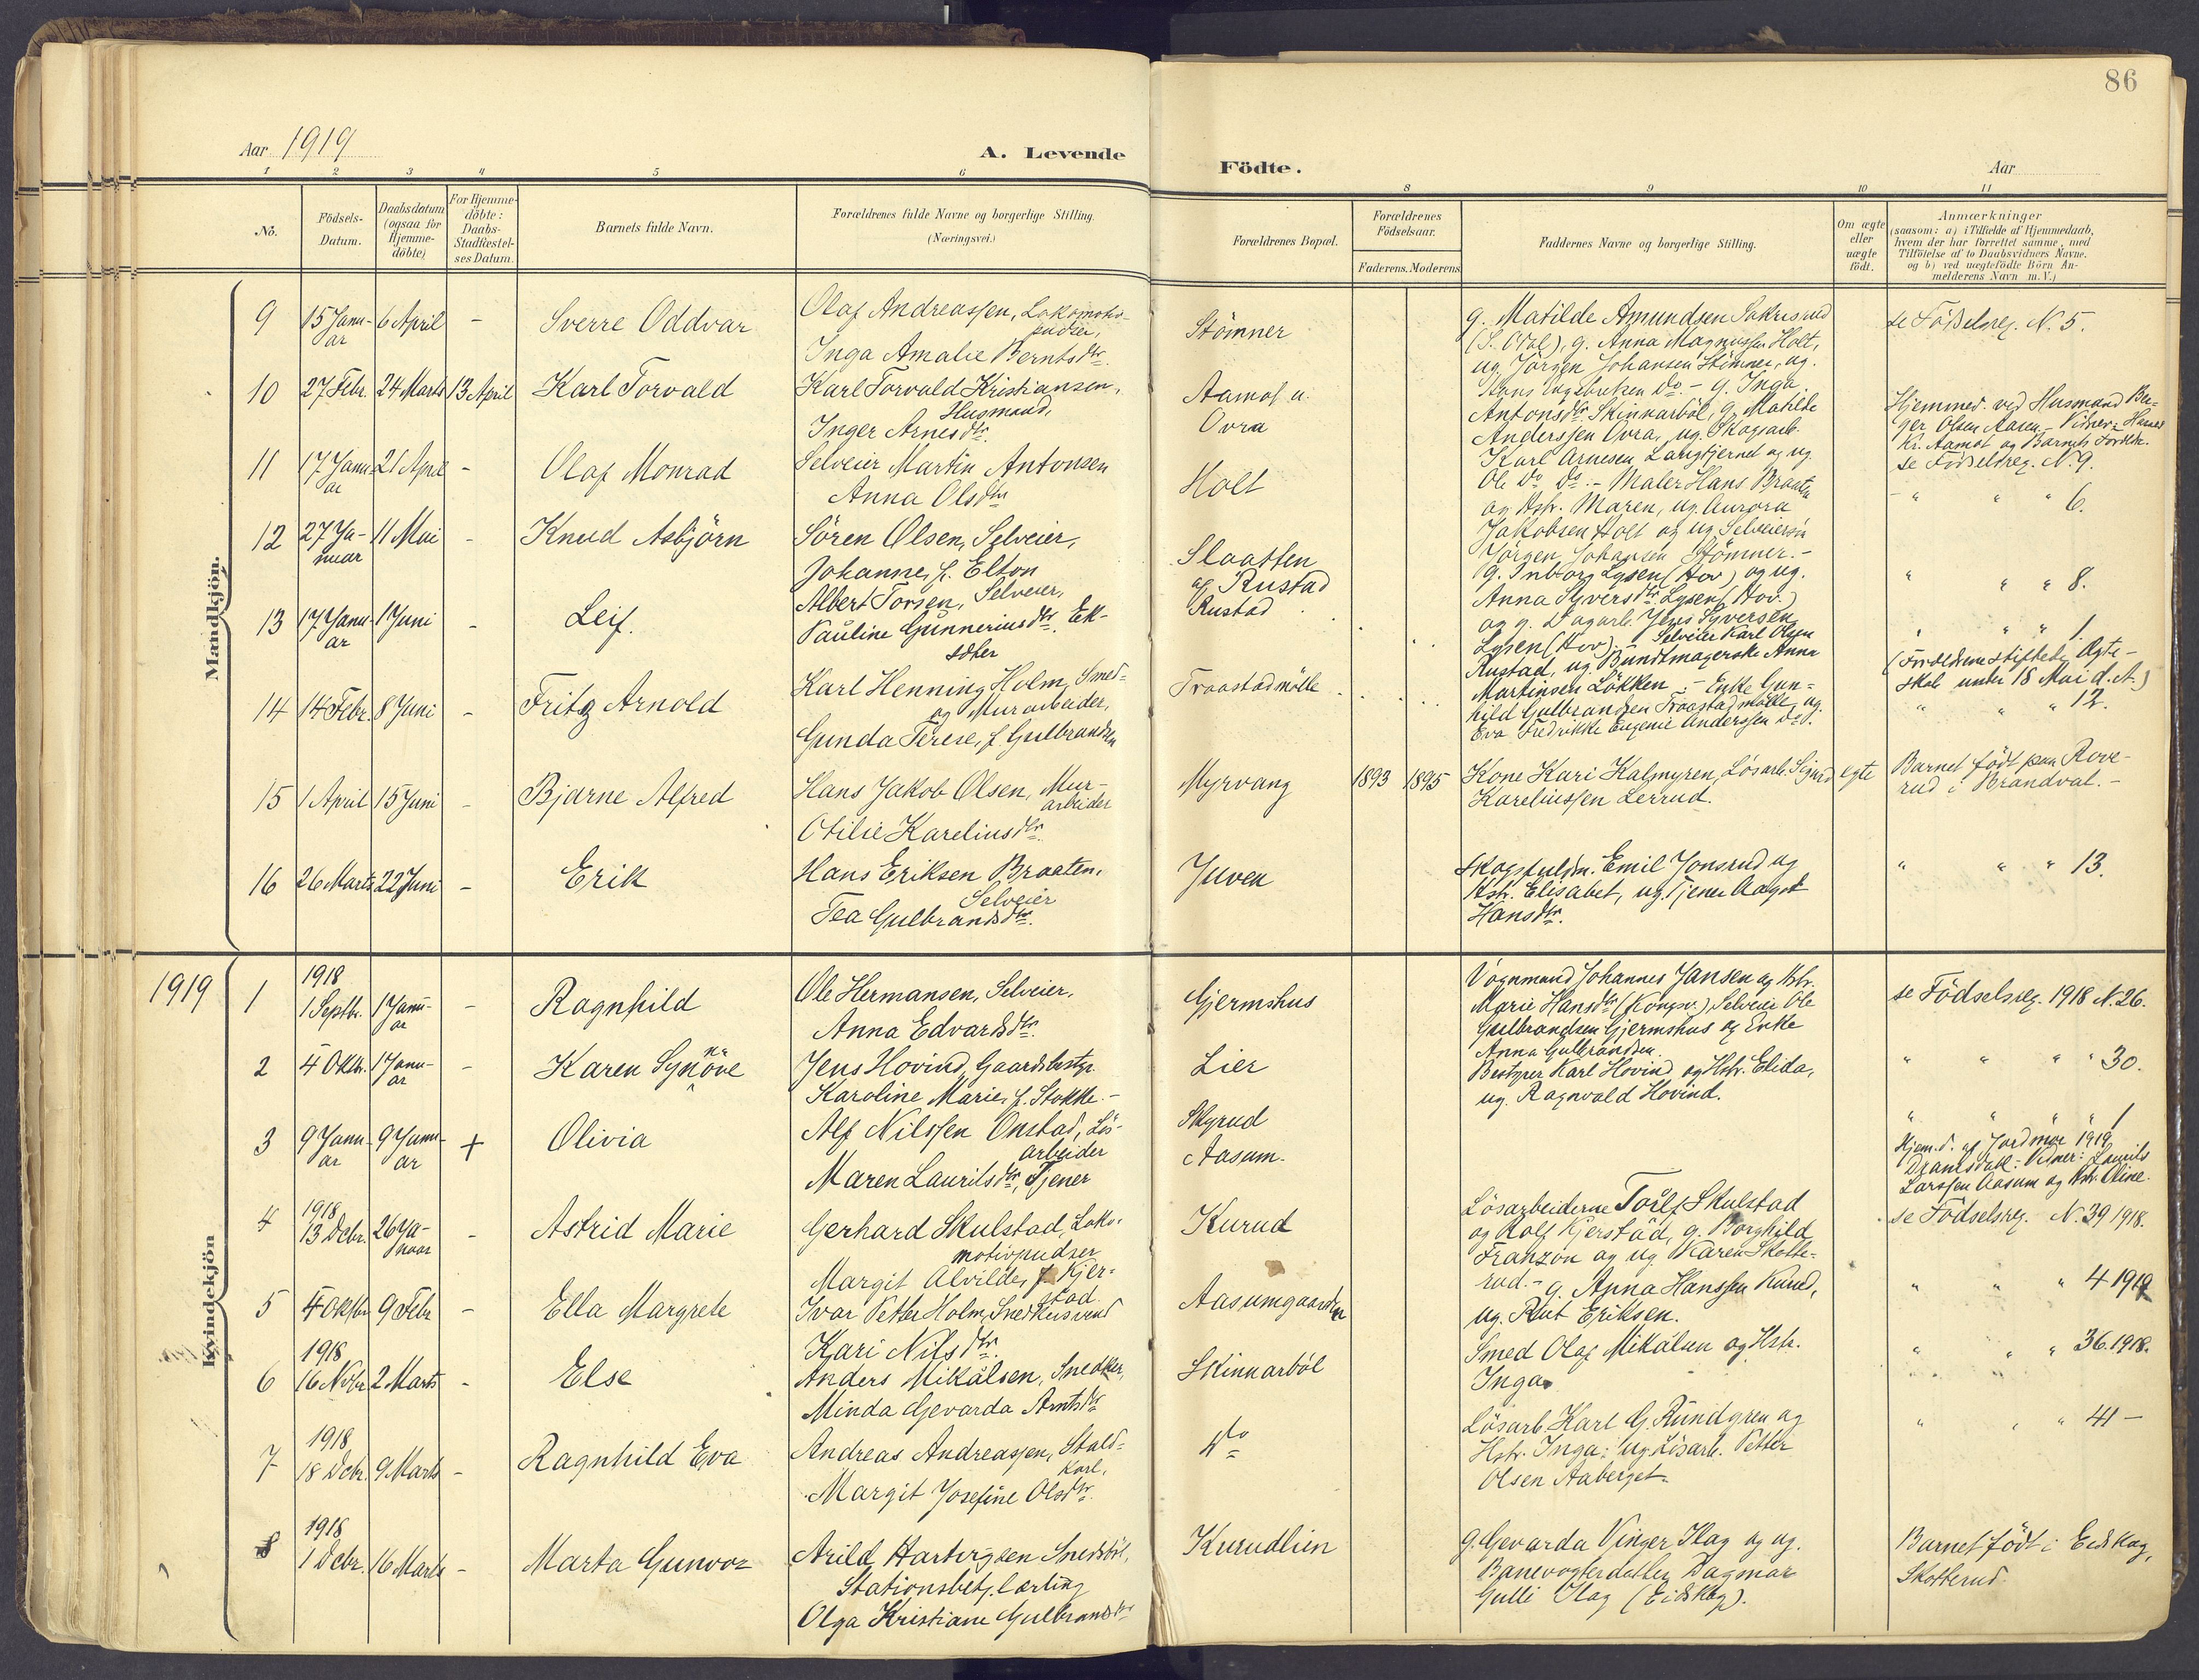 86
Aar 1919
A. Levende
Födte.
Aar
1 2 3 4 5 6 8 9 10 11
No.
Födsels-
Datum.
Daabsdatum
(ogsaa for
Hjemme-
döbte)
For Hjemme-
döbte:
Daabs-
Stadfæstel-
ses Datum.
Barnets fulde Navn.
Forældrenes fulde Navne og borgerlige Stilling.
(Næringsvei.)
Forældrenes Bopæl.
Forældrenes
Födselsaar.
Faderens. Moderens
Faddernes Navne og borgerlige Stilling.
Om ægte
eller
uægte
födt.
Anmærkninger
(saasom: a) i Tilfælde af Hjemmedaab,
hvem der har forrettet samme, med
Tilföielse af to Daabsvidners Navne.
og b) ved uægtefödte Börn An-
melderens Navn m. V.)
Mandkjön.
9
15 Janu-
ar
6 April
-
Sverre Oddvar
Olaf Andreassen, Lokomotiv-
pudser,
Inga Amalie Berntsdtr.
Stömner
g. Matilde Amundsen
g. Anna Magnussen Holt,
ug. Jörgen Johansen Stömner, ug.
se Födselsreg. N. 5.
10
27 Febr.
24 Marts
13 April
Karl Torvald
Karl Torvald Kristiansen,
Husmand,
Inger Arnesdtr.
Aamot u.
Ovra
Do - g. Inga
Antonsdtr. Skinnarböl, g. Matilde
Anderssen Ovra, ug. Skogsarb.
Karl Arnesen Langtjernet og ug.
Ole Do Do. - Maler Hans Braaten
Hjemmed. ved Husmand Bir-
ger Olsen Aasen - Vidner: Hans
Kr. Aamot og Barnets Foreldre.
se Födselsreg. N. 9.
11
17 Janu-
ar
21 April
-
Olaf Monrad
Selveier Martin Antonsen
Anna Olsdtr
Holt
og Hstr. Maren, ug. Aurora
Jakobsen Holt og ug. Selveiersön
Jörgen Johansen Stömner. -
" " " 6.
12
27 Ja-
nuar
11 Mai
-
Knud Asbjörn
Sören Olsen, Selveier,
Johanne, f. Elton
Slaatten
af Rustad
g. Inborg Lysen (Hov) og ug.
Anna Syversdtr. Lysen (Hov)
og g. Dagarb. Jens Syversen
Lysen (Hov)
" " " 8.
13
17 Janu-
ar
1 Juni
-
Leif.
Albert Torsen, Selveier,
Pauline Gunneriusdtr. Ek-
sæter
Rustad
Selveier Karl Olsen
Rustad, ug. Bundtmagerske Anna
Martinsen Lökken. - Enke Gun-
" " " 1
(Foreldrene stiftede Ægte-
skab under 18 Mai d. A.)
14
14 Febr.
8 Juni
-
Fritz Arnold
Karl Henning Holm, Smed-
og Murarbeider,
Gunda Terese, f. Gulbrandsen
Traastadmölle
hild Gulbrandsen Traastadmölle, ug.
Eva Fredrikke Eugenie Anderssen do.
" " " 12.
15
1 April
15 Juni
-
Bjarne Alfred
Hans Jakob Olsen, Mur-
arbeider
Otilie Kareliusdtr.
Myrvang
1893 1895
Kone Kari Kalmyren, Lösarb. Sigurd
Kareliussen Lerrud.
egte
Barnet födt paa Rove-
rud i Brandval. -
16
26 Marts
22 Juni
-
Erik
Hans Eriksen Braaten,
Selveier
Tea Gulbrandsdtr.
Juven
Skogsfuldm. Emil Jonsrud og
Hstr. Elisabet, ug. Tjener Aagot
Hansdtr.
" " " 13.
1919
Kvindekjön
1
1918
1 Septbr.
1 Janu-
ar
-
Ragnhild
Ole Hermansen, Selveier,
Anna Edvardsdtr.
Gjermshus
Vognmand Johannes Jansen og Hstr.
Marie Hansdtr. (Kongsv.), Selveier Ole
Gulbrandsen Gjermshus og Enke
Anna Gulbrandsen.
se Födselsreg. 1918 N. 26.
2
4 Oktbr.
1 Janu-
ar
-
Karen Synnöve
Jens Hovind, Gaardsbestyr.
Karoline Marie, f. Stokke. -
Lier
Bestyrer Karl Hovind og Hstr. Elida,
ug. Ragnvald Hovind.
" " " " 30.
3
9 Janu-
ar
9 Janu-
ar
+
Olivia
Alf Nilssen Onstad, Lös-
arbeider
Maren Lauritsdtr, Tjener
Skyrud
Aasum.
" " " " 1
Hjem.d. af Jordmor 1919
Vidner: Laurits
Larssen Aasum og Hstr. Oline.
4
1918
13 Debr.
26 Ja-
nuar
-
Astrid Marie
Gerhard Skulstad, Loko-
motivpudser
Margit Alvilde, f. Kjer-
stad
Kurud
Lösarbeiderne Toralf Skulstad
og Rolf Kjerstad, g. Borghild
Franzon og ug. Karen Skotte-
rud. - g. Anna Hanssen Kurud,
se Födselsreg. N. 39 1918.
5
4 Oktbr
9 Febr
-
Ella Margrete
Ivar Petter Holm, Snedkersvend
Kari Nilsdtr.
Aasumgaarden
ug. Rut Eriksen.
" " " 4 1919
6
1918
16 Novbr
2 Marts
-
Else
Anders Mikalsen, Snedker,
Minda Gevarda Arntsdtr
Skinnarböl
Smed Olaf Mikalsen og Hstr.
Inga.
" " " 36. 1918.
7
1918
18 Debr.
9 Marts
-
Ragnhild Eva
Andreas Andreassen, Stald-
karl,
Margit Josefine Olsdtr.
do
Lösarb. Karl G. Rundgren og
Hstr. Inga; ug. Lösarb. Petter
Olsen Aaberget.
" " " 41 -
8
1918
1 Debr.
16 Marts
-
Marta Gunvor
Arild Hartvigsen Snedsböl,
Stationsbetj. lærling
Olga Kristiane Gulbrandsdtr
Kurudlien
g. Gevarda Vinger Flag og ug.
Banevogterdatter Dagmar
Gulli Olag (Eidskog).
Barnet födt i Eidskog,
Skotterud.